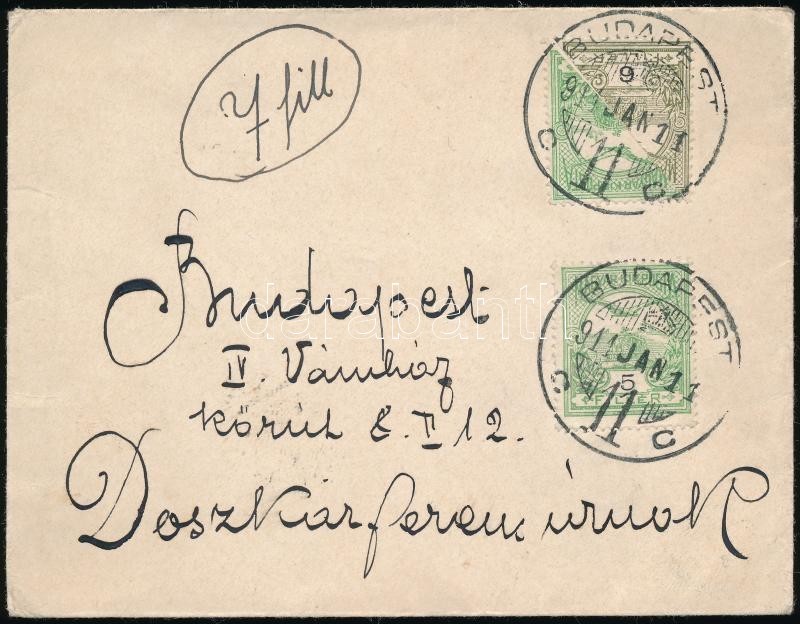 7 fill
BUDAPEST
911 JAN 11
11
C C
6
BUDAPEST
911 JAN 11
11
C 1 C
5
Budapest
IV. Vámház
körút 8. II 12.
Doszkár ferenc úrnak
darabanth